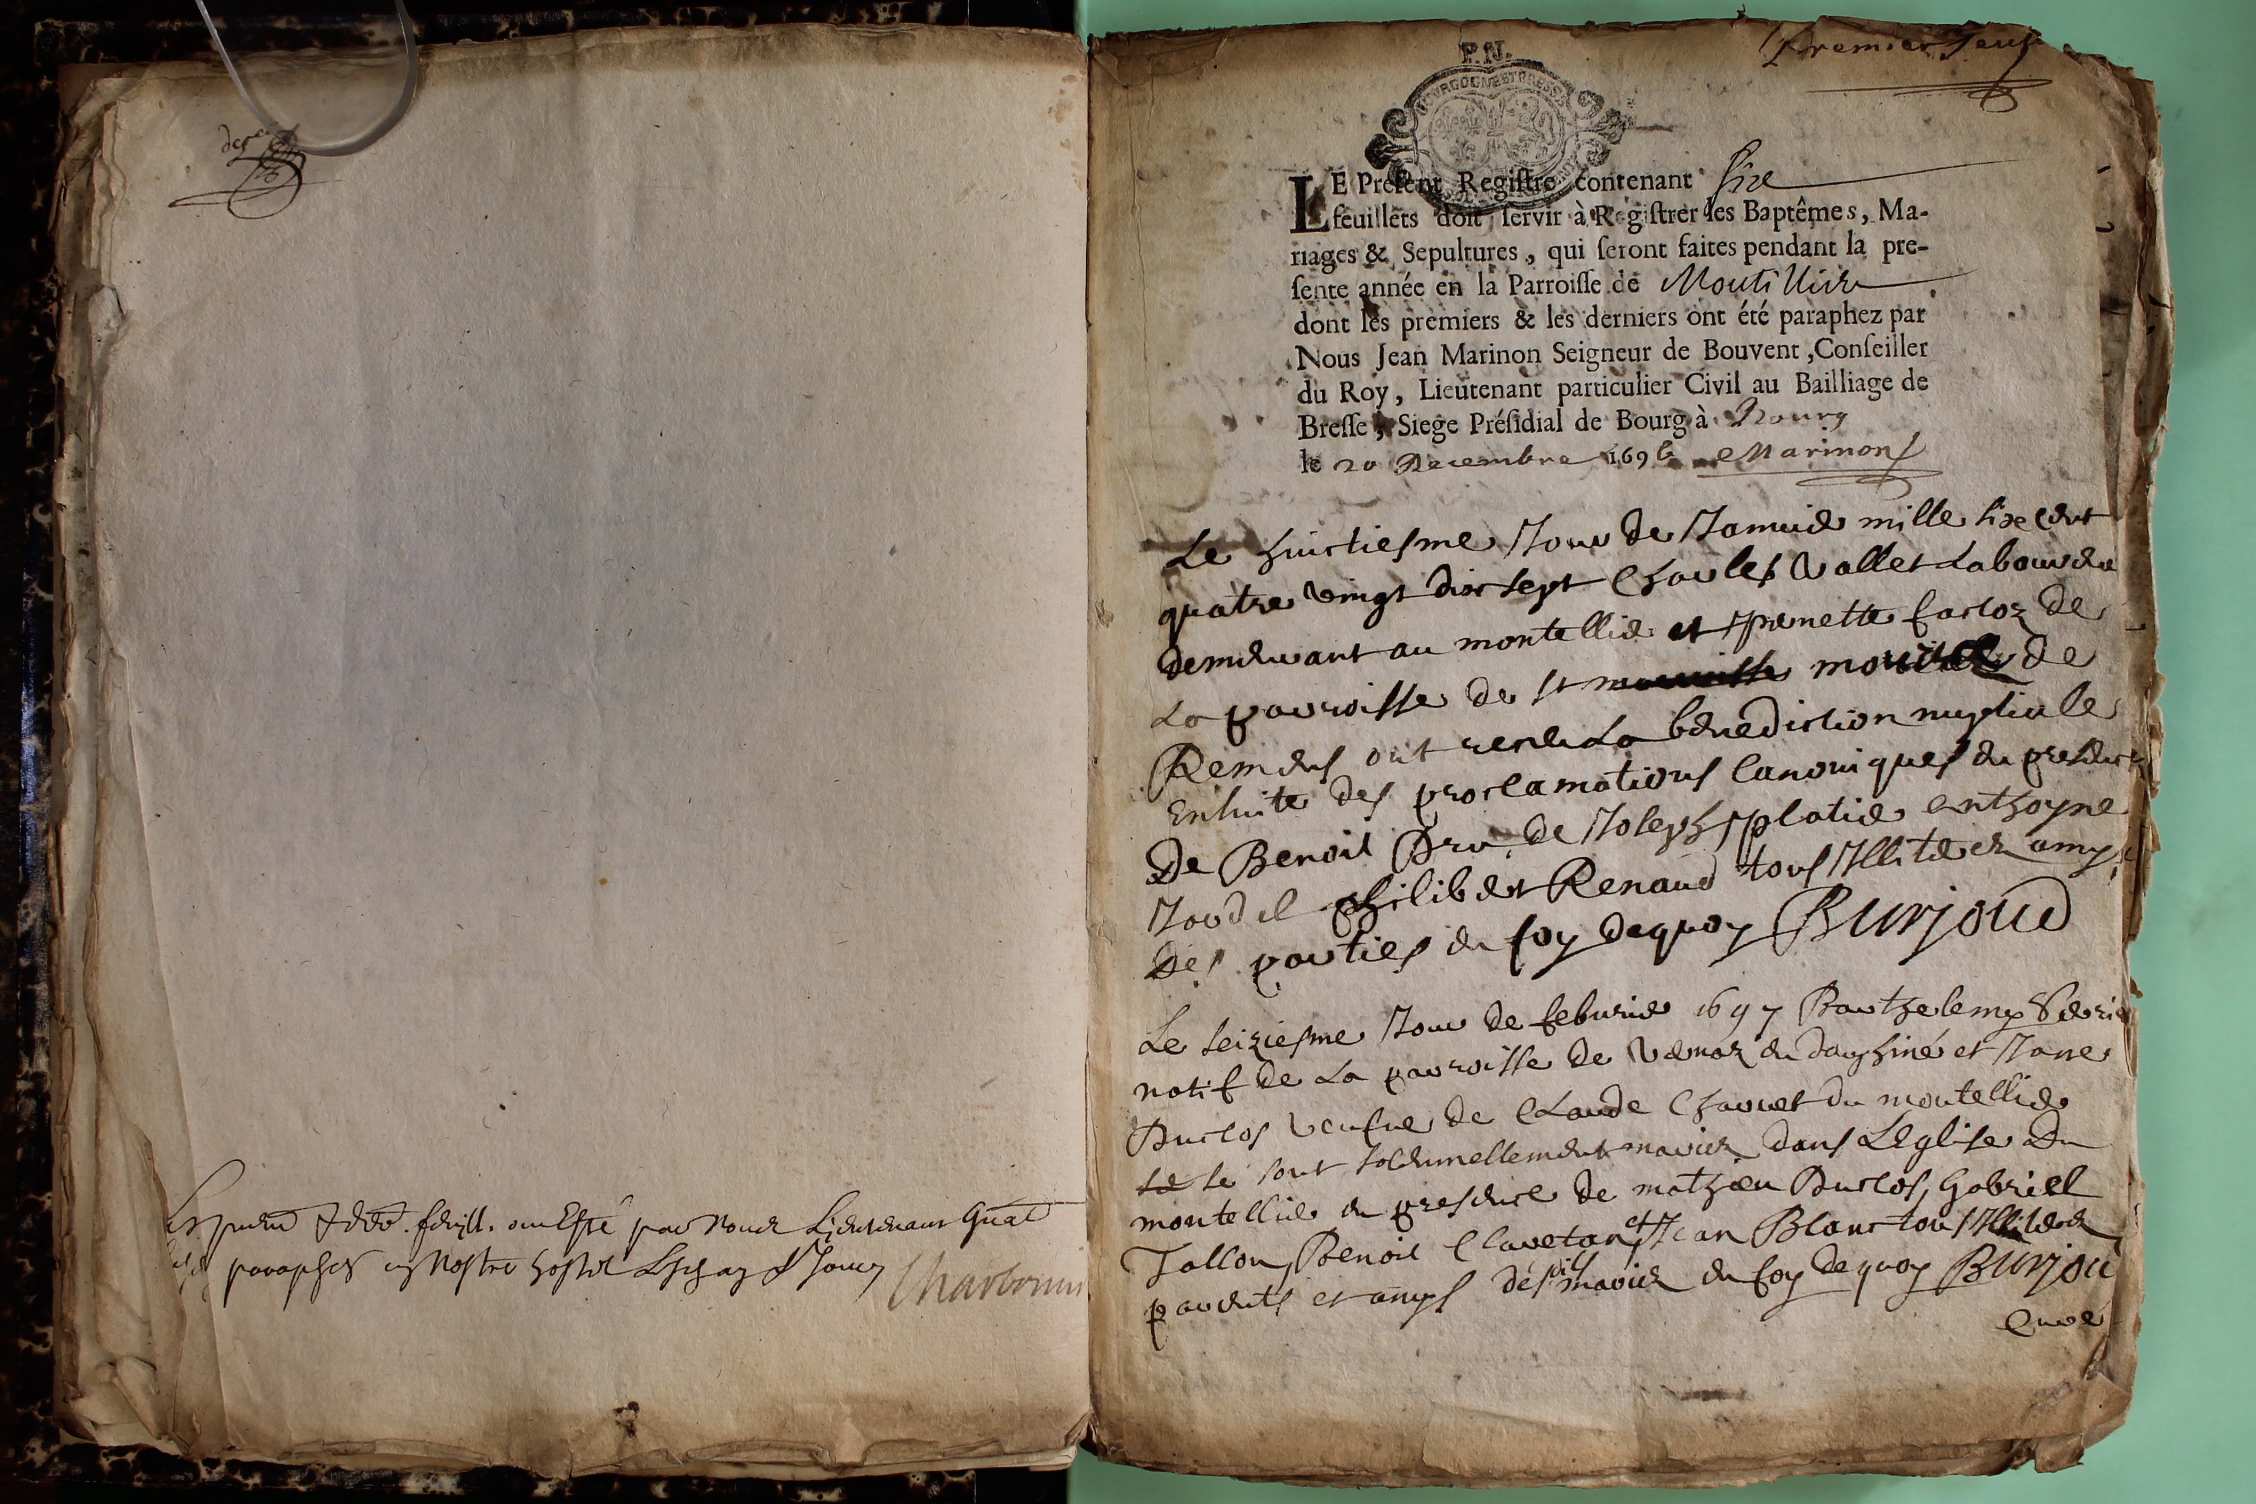 der
Les premier & dernier feuillets ont Esté par nous Lieutenant Gnal
paraphez en Nostre hostel
Charbonn
Premier feuil
P. N.
BOURGOGNE ET BRESSE
LE Preſent Regiſtre contenant six
feuillets doit ſervir à Regiſtrer les Baptêmes, Ma-
riages & Sepultures, qui ſeront faites pendant la pre-
ſente année en la Parroiſſe de Montellier
dont les premiers & les derniers ont été paraphez par
Nous Jean Marinon Seigneur de Bouvent, Conſeiller
du Roy, Lieutenant particulier Civil au Bailliage de
Breſſe, Siege Préſidial de Bourg à Bourg
le 20 Decembre 1696 Marinon
Le huictiesme Jour de Januier mille six cent
quatre vingt dix sept Charles Vallet Laboureur
demeurant au montellier et pernette factoz de
La parroisse de st de
Remens ont receu La benediction nuptiale
Ensuite des proclamations Canoniques en presence
De Benoit Dru, de Joseph platier anthoyne
Jordel philibert Renaud tous Illiterez amys
des parties en foy dequoy Burjoud
Le seiziesme Jour de feburier 1697 Barthelemy
natif de La parroisse de Vernaz en dauphiné et Jane
Duclos Veufue de Claude Charvet du montellier
se se sont solennellement mariez dans L'Eglise Du
montellier en presence de mathieu Duclos, Gabriel
Tallon, Benoit Clavetan, et Jean Blanc tous Illiterez
parents et amys desdits mariez en foy de quoy Burjou
Curé